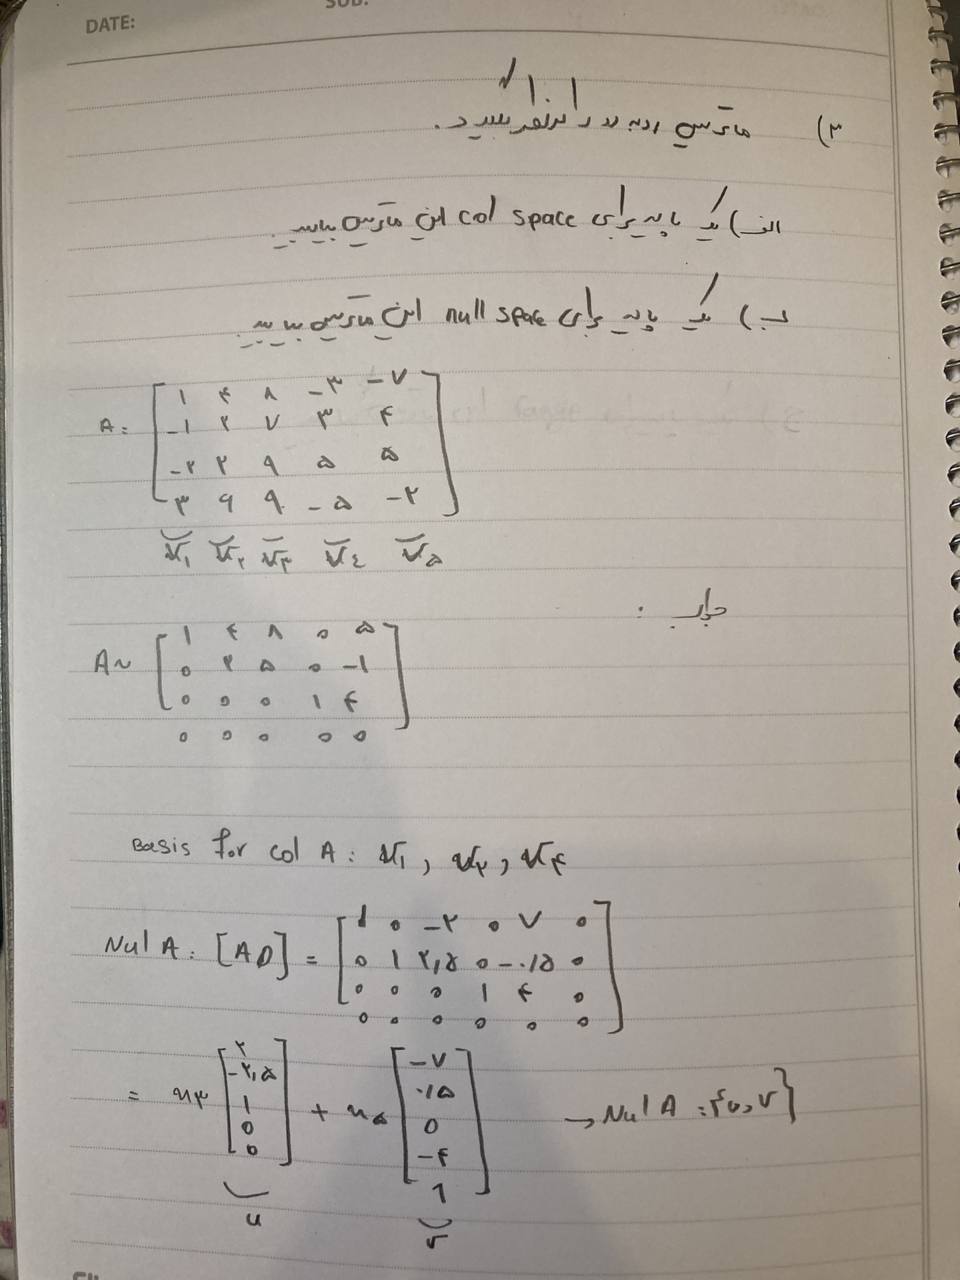 DATE:
SUB:
۳) ماتریس روبه رو را در نظر بگیرید.
الف) یک پایه برای col space این ماتریس بیابید.
ب) یک پایه برای null space این ماتریس بیابید.
A = [ ۱ ۴ ۸ -۳ -۷
-۱ ۲ ۷ ۳ ۴
-۲ ۲ ۹ ۵ ۵
۳ ۶ ۹ -۵ -۲ ]
v۱ v۲ v۳ v٤ v۵
جواب :
A~ [ ۱ ۴ ۸ ۰ ۵
۰ ۲ ۵ ۰ -۱
۰ ۰ ۰ ۱ ۴
۰ ۰ ۰ ۰ ۰ ]
Basis for col A : v۱ , v۲ , v۴
Nul A : [A 0] = [ ۱ ۰ -۲ ۰ ۷ ۰
۰ ۱ ۲,۵ ۰ -۰,۵ ۰
۰ ۰ ۰ ۱ ۴ ۰
۰ ۰ ۰ ۰ ۰ ۰ ]
= x۳ [ ۲ -۲,۵ ۱ ۰ ۰ ] + x۵ [ -۷ ۰,۵ ۰ -۴ ۱ ] → Nul A : {u, v}
u v